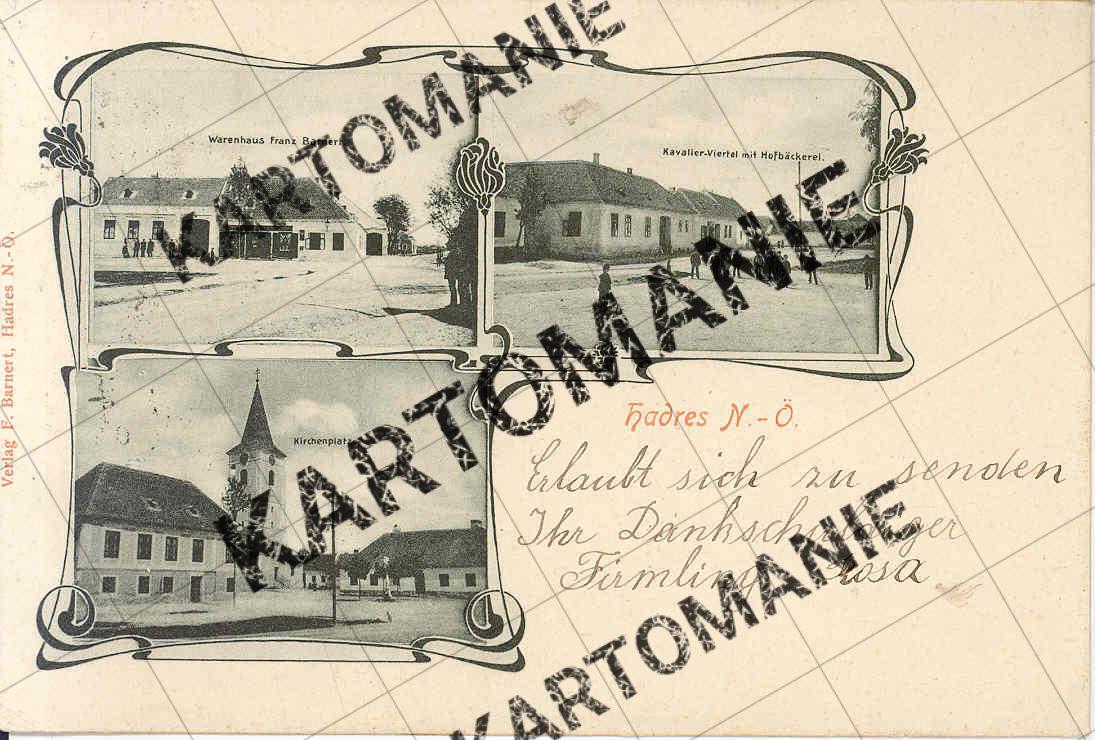 Warenhaus Franz Barnert
Kavalier-Viertel mit Hofbäckerei.
Kirchenplatz
Verlag F. Barnert, Hadres N.-Ö.
Hadres N.-Ö.
Erlaubt sich zu senden
Ihr Dankschuldiger
Firmling Rosa
KARTOMANIE
KARTOMANIE
KARTOMANIE
KARTOMANIE